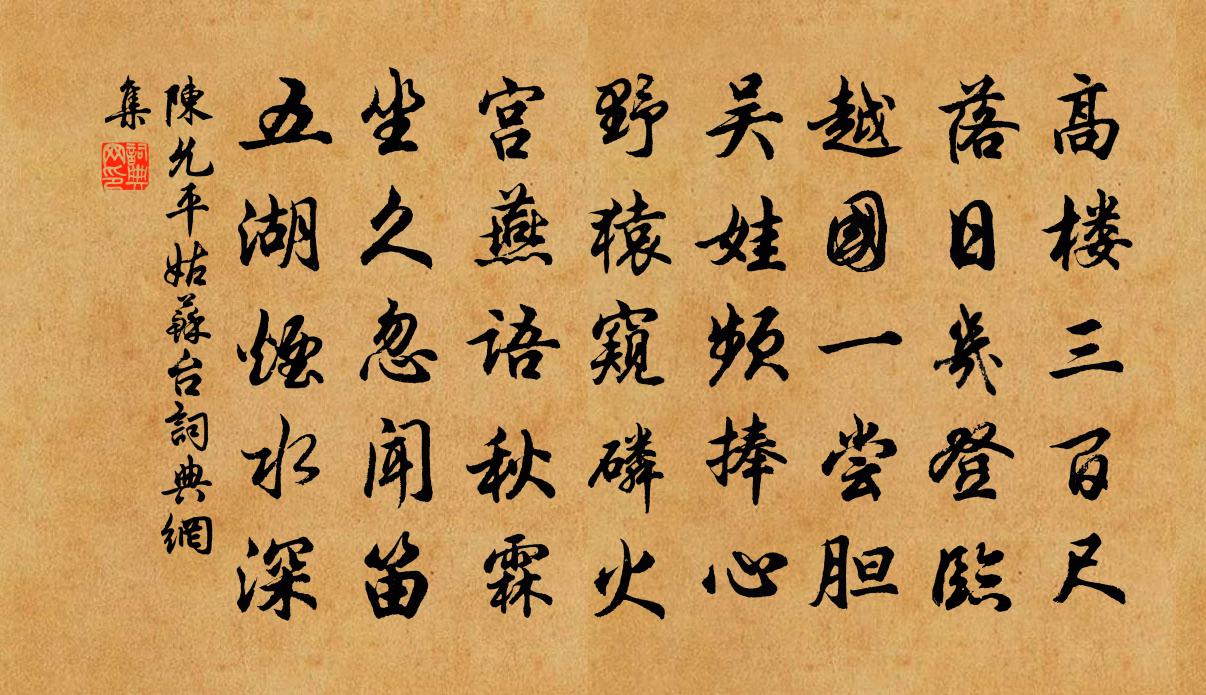 高楼三百尺
落日幾登臨
越國一尝胆
吴娃频捧心
野猿窺磷火
宫燕語秋霖
坐久忽闻笛
五湖煙水深
陳允平姑蘇台詞典網
集
詞典網印